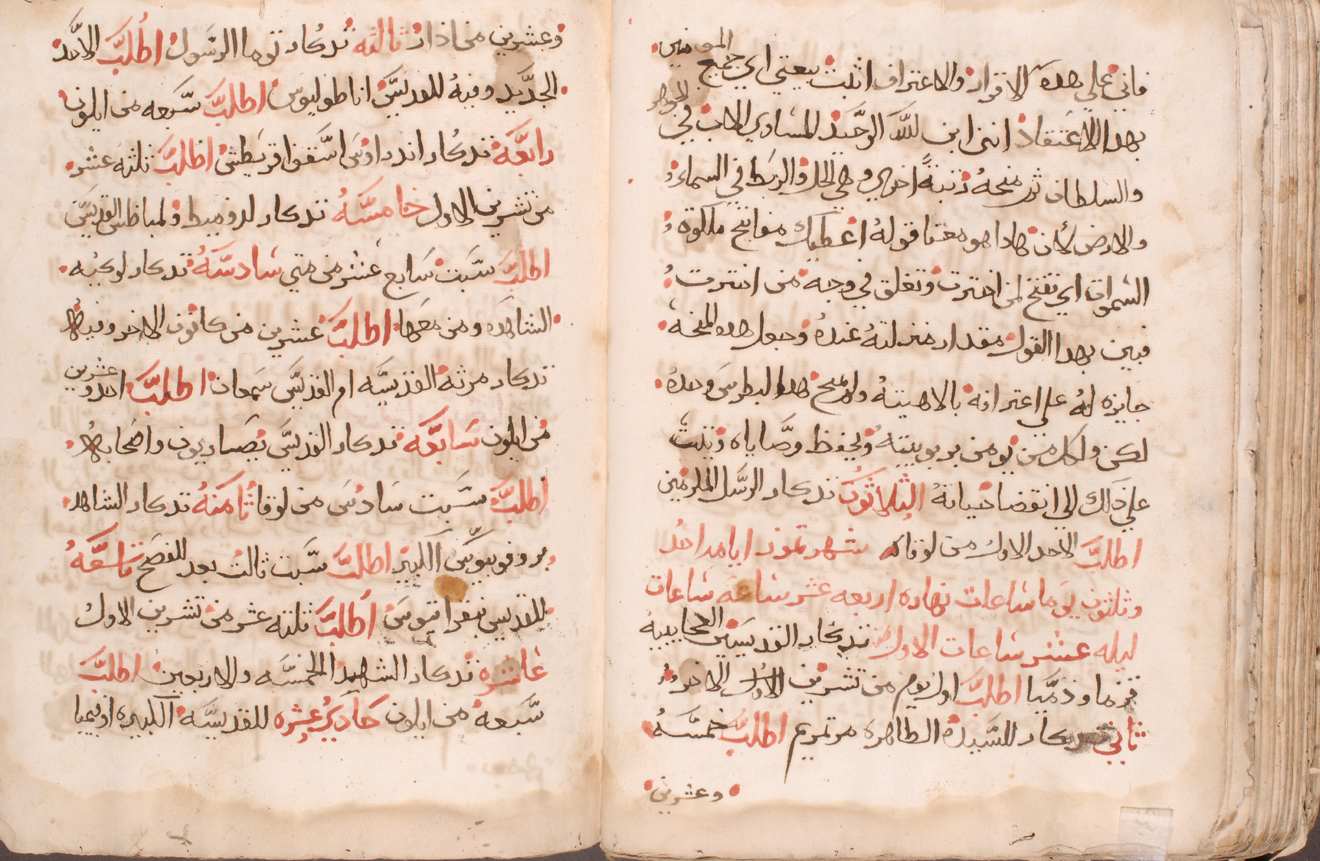 المومنين
فاني على هده الاقرار والاعتراف اثبت بيعتي اي جميع
بهدا الاعتقاد انني ابن لله الوحيد المساوي الاب في الجوهر
والسلطان ثم منحه رتبةً اخرى وهي الحل والربط في السماء
والارض لأن هادا هو معنا قوله اعطيك مفاتيح ملكوة
السموات اي تفتح لمن اخترت وتغلق في وجه من اخترت
فبين بهدا القول مقدار منزلته عنده وجعل هده المنحه
جايزه له على اعترافه بالاهيته ولم يمنح هدا لبطرس وحده
لكن ولكل من يومن بربوبيته ويحفظ وصاياه وتبت
على دلك الى انقضا حياته الثلاثون تدكار الرسل الملزمين
اطلب الاحد الاول من لوقا شهر تموز ايامه احد
وثلثون يوما ساعات نهاره اربعه عشر ساعه ساعات
ليله عشر ساعات الاول تدكار القديسين العجايبيه
قزما ودميا اطلب اول يوم من تشرين الاخر
ثاني تدكار للسيدة الطاهره مرتمريم اطلب خمسة
وعشرين
وعشرين من اذار ثالثه تدكار توما الرسول اطلب الاحد
الجديد وفيه للقديس اناطوليوس اطلب سبعه من ايلون
رابعة تدكار اندراوس اسقف اقريطش اطلب ثلثه عشر
من تشرين الاول خامسة تدكار القديس
اطلب سبت سابع عشر من متي سادسة تدكار لوكيه
الشاهده ومن معها اطلب عشرين من كانون الاخر وفيه
تدكار مرثه القديسه ام القديس سمعان اطلب احد وعشرين
من ايلون سابعة تدكار القديس واصحابه
اطلب سبت سادس من لوقا ثامنة تدكار الشاهد
بروقوبيوس الكبير اطلب سبت ثالث بعد الفصح تاسعة
للقديس اطلب ثلثه عشر من تشرين الاول
عاشره تدكار الشهدا الخمسه والاربعين اطلب
سبعه من ايلون حادي عشره للقديسه الكبيره اوفيميا